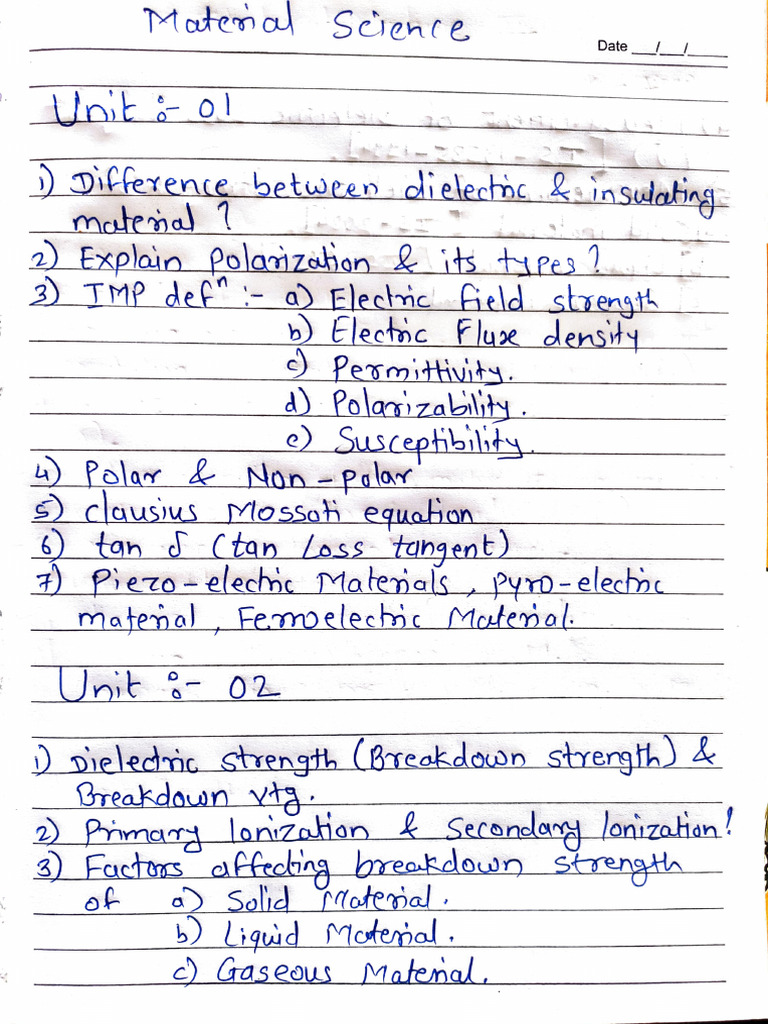 Material Science
Date __/__/____
Unit :- 01
1) Difference between dielectric & insulating
material ?
2) Explain Polarization & its types ?
3) IMP defⁿ :- a) Electric field strength
b) Electric Fluxe density
c) Permittivity.
d) Polarizability.
e) Susceptibility.
4) Polar & Non-polar
5) Clausius Mossoti equation
6) tan δ (tan Loss tangent)
7) Piezo-electric Materials, pyro-electric
material, Ferroelectric Material.
Unit :- 02
1) Dielectric strength (Breakdown strength) &
Breakdown vtg.
2) Primary Ionization & Secondary Ionization!
3) Factors affecting breakdown strength
of a) Solid Material.
b) Liquid Material.
c) Gaseous Material.